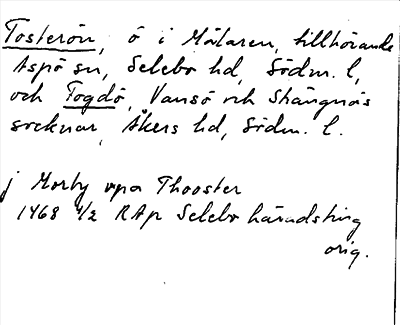 Tosterön, ö i Mälaren, tillhörande
Aspö sn, Selebo hd, Södm. l,
och Fogdö, Vansö och Strängnäs
socknar, Åkers hd, Södm. l.
j Morby upa Thooster
1468 4/2 RAp Selebo häradsting
orig.